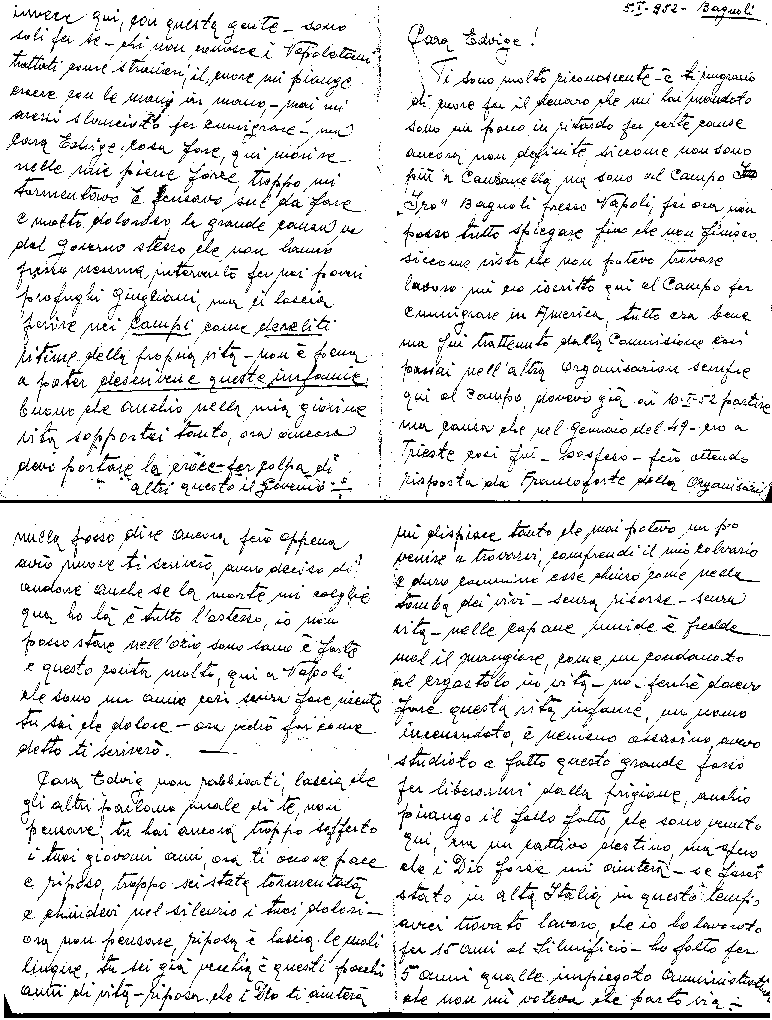 5-I-952- Bagnoli
Cara Edvige!
Ti sono molto riconoscente - e ti ringrazio
di cuore per il denaro che mi hai mandato
sono un poco in ritardo per certe cause
ancora non definite siccome non sono
più a Canzanella ma sono al Campo
"Iro" Bagnoli presso Napoli, per ora non
posso tutto spiegare fino che non finisco
siccome visto che non potevo trovare
lavoro mi ero iscritto qui al Campo per
emmigrare in America, tutto era bene
ma fui trattenuto dalla Commisione così
passai nell'altra Organisasion sempre
qui al Campo, dovevo già ai 10-I-52 partire
ma causa che nel gennaio del 49- ero a
Trieste così fui - sospeso - però attendo
risposta da Francoforte della Organisasi
nulla posso dire ancora però appena
avrò nuove ti scriverò, avevo deciso di
andare anche se la morte mi coglie
qua ho là è tutto l'astesso, io non
posso stare nell'ozio, sono sano è forte
e questo conta molto, qui a Napoli
che sono un anno così senza fare niente
tu sai che dolore - ora vedrò poi come
detto ti scriverò. -
Cara Edvig non rabbiarti, lascia che
gli altri parlano male di te, non
pensare, tu hai ancora troppo sofferto
i tuoi giovani anni, ora ti occore pace
e riposo, troppo sei stata tormentata
e chiudevi nel silenzio i tuoi dolori -
ora non pensare, riposa è lascia le mali
lingue, tu sei già vecchia è questi pochi
anni di vita - riposa che i Dio ti aiuterà
mi dispiace tanto che mai potevo un po
venire a trovarvi, comprendi il mio calvario
e duro cammino esse chiuso come nella
tomba dei vivi - senza risorse - senza
vita - nelle capane umide è fredde
mal il mangiare, come un condanato
al ergastolo in vita - no - perchè dovevo
fare questa vita infame, un uomo
incensurato, è nemeno assasino, avevo
studiato e fatto questo grande passo
per liberarmi dalla prigione, anchio
piango il fallo fatto, che sono venuto
qui, era un cattivo destino, ma spero
che i Dio forse mi aiuterà - se fossi
stato in alta Italia in questo tempo
avrei trovato lavoro, che io ho lavorato
per 15 ani al Silurificio - ho fatto per
5 anni qualle impiegato Amministrativo
che non mi voleva che parto via -
invece qui, con questa gente - sono
soli per se - chi non conosce i Napoletani
trattati come stranieri, il cuore mi piange
essere con le mani in mano, - mai mi
avessi slanciato per emmigrare - ma
Cara Edvige, cosa fare, qui morire
nelle mie piene forze, troppo mi
tormentavo è pensavo sul da fare
e molto doloroso, la grande causa va
dal Governo stesso che non hanno
presso nessuna intervento per noi poveri
profughi Giugliani, ma ci lascia
perire nei Campi come dereliti
vitime della propria vita - non è pena
a poter descrivere queste infamie
buono che anchio nella mia giovine
vita sopportai tanto, ora ancora
devi portare la croce per colpa di
altri questo il Governo -